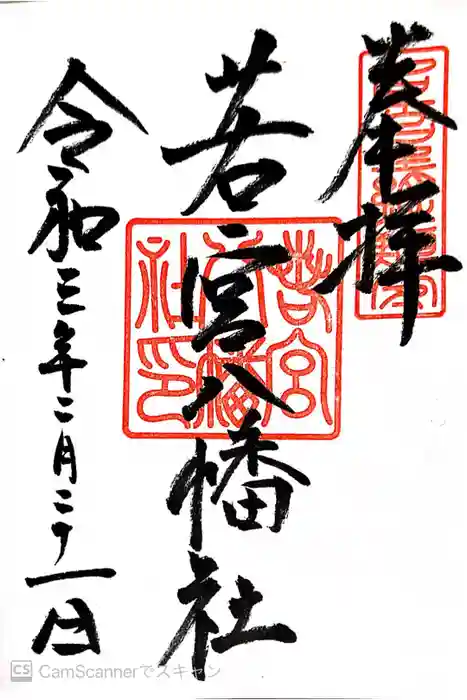 奉拝
若宮八幡社
令和三年二月二十一日
若宮
八幡
社印
CS CamScannerでスキャン